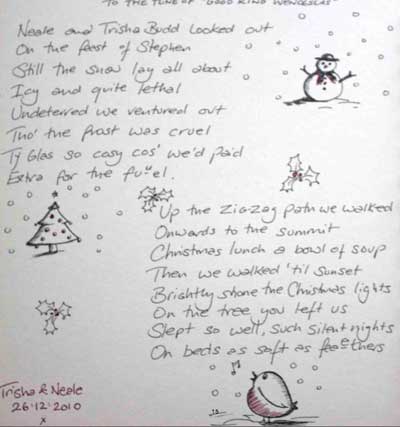 TO THE TUNE OF "GOOD KING WENCESLAS"
Neale and Trisha Budd looked out
On the feast of Stephen
Still the snow lay all about
Icy and quite lethal
Undeterred we ventured out
Tho' the frost was cruel
Ty Glas so cosy cos' we'd paid
Extra for the fu-el.
Up the zig-zag path we walked
Onwards to the summit
Christmas lunch a bowl of soup
Then we walked 'til sunset
Brightly shone the Christmas lights
On the tree you left us
Slept so well, such silent nights
On beds as soft as fe-e-thers
Trisha & Neale
26·12·2010
x